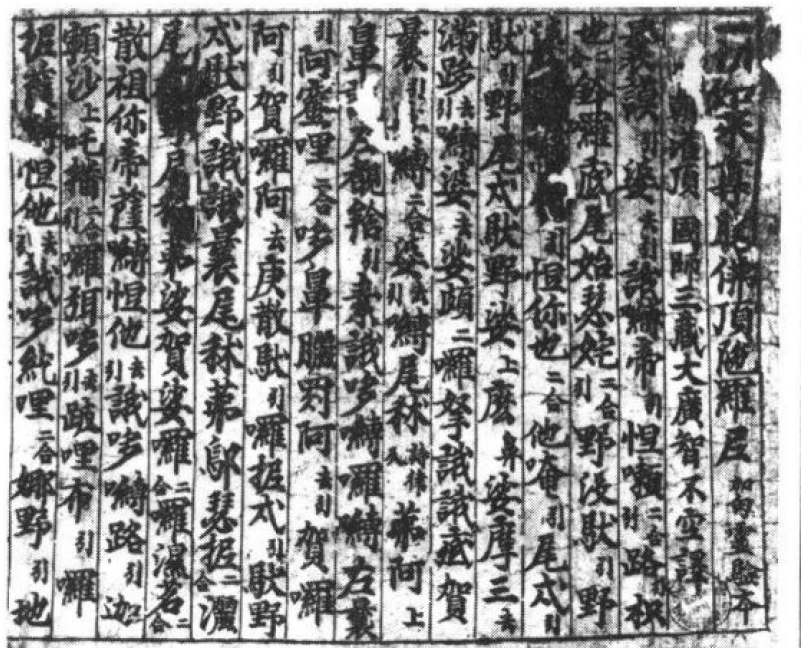 一切如來尊勝佛頂陁羅尼 加句靈驗本
灌頂國師三藏大廣智不空譯
曩謨引婆去引誐嚩帝引怛𡃤二合路引枳
也二合鉢羅底尾始瑟姹二合引野沒馱引野
引怛你也二合他唵引尾戍引
馱引野尾戍馱野娑上麼鼻娑摩三去
滿跢去引嚩娑去娑頗二囉拏誐誐底賀
曩引嚩二合娑去引嚩尾秫詩律反弟阿上
鼻左覩給引素誐哆嚩囉嚩左曩
引阿蜜哩二合哆鼻曬罽阿去引賀囉
阿引賀囉阿去庾散馱引囉抳戍引馱野
戍馱野誐誐曩尾秫弟鄔瑟抳二合灑
尾尾秫弟娑賀娑囉二合囉濕茗二合
散祖你帝薩嚩怛他去誐哆嚩路引迦
頞沙上吒播二合引囉頞哆去引跛哩布引囉
抳薩嚩怛他去引誐哆紇哩二合娜野引地